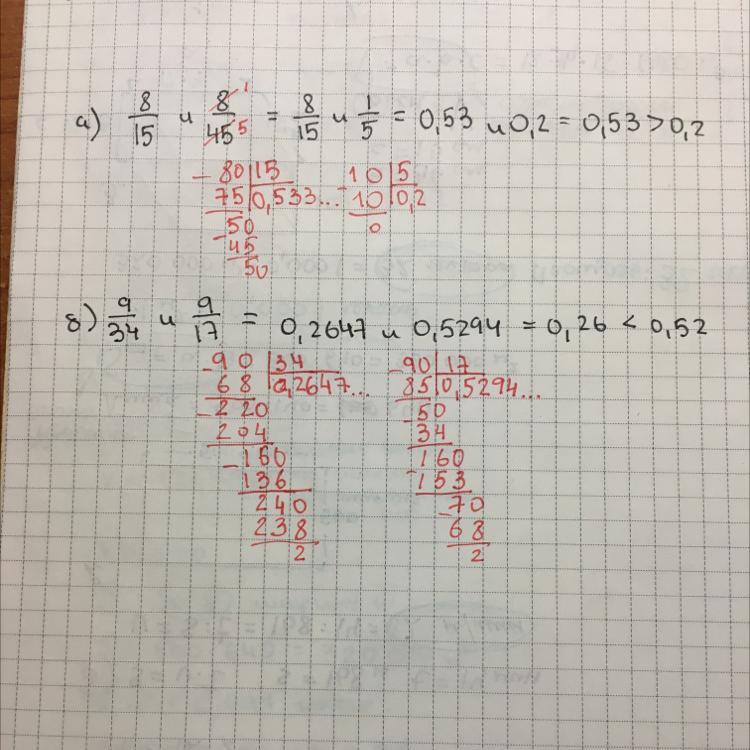 а) 8/15 и 8/45 1 5 = 8/15 и 1/5 = 0,53 и 0,2 = 0,53 > 0,2
- 80 | 15 - 10 | 5
75 | 0,533... 10 | 0,2
- 50 0
45
50
б) 9/34 и 9/17 = 0,2647 и 0,5294 = 0,26 < 0,52
- 90 | 34 - 90 | 17
68 | 0,2647... 85 | 0,5294...
- 220 - 50
204 34
- 160 - 160
136 153
240 - 70
238 68
2 2